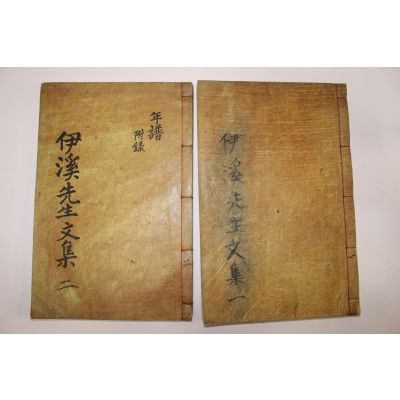 年譜
附錄
伊溪先生文集 二
二
伊溪先生文集 一
一